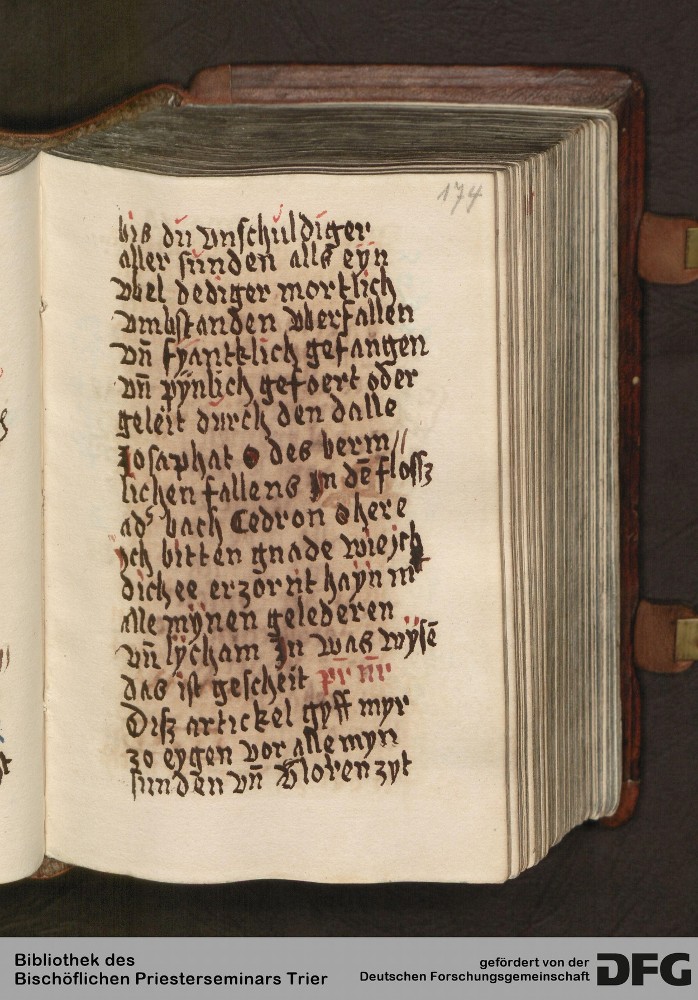 174
bis du vnschuldiger
aller sunden alls eyn
vbel dediger mortlich
vmbstanden vberfallen
vn̄ fyantklich gefangen
vn̄ pÿnlich gefoert oder
geleit durch den dalle
Josaphat o des berm//
lichen fallens Jn dē flossz
ad⸗ bach Cedron o here
Jch bitten gnade wie jch
dich ee erzornt hayn mͭ
alle mÿnen gelederen
vn̄ lÿcham Jn was wÿsē
das ist gescheit pr̄ nr̄
Disz artickel gyff myr
zo eygen vor alle myn
sunden vn̄ vloren zyt
Bibliothek des
Bischöflichen Priesterseminars Trier
gefördert von der
Deutschen Forschungsgemeinschaft
DFG